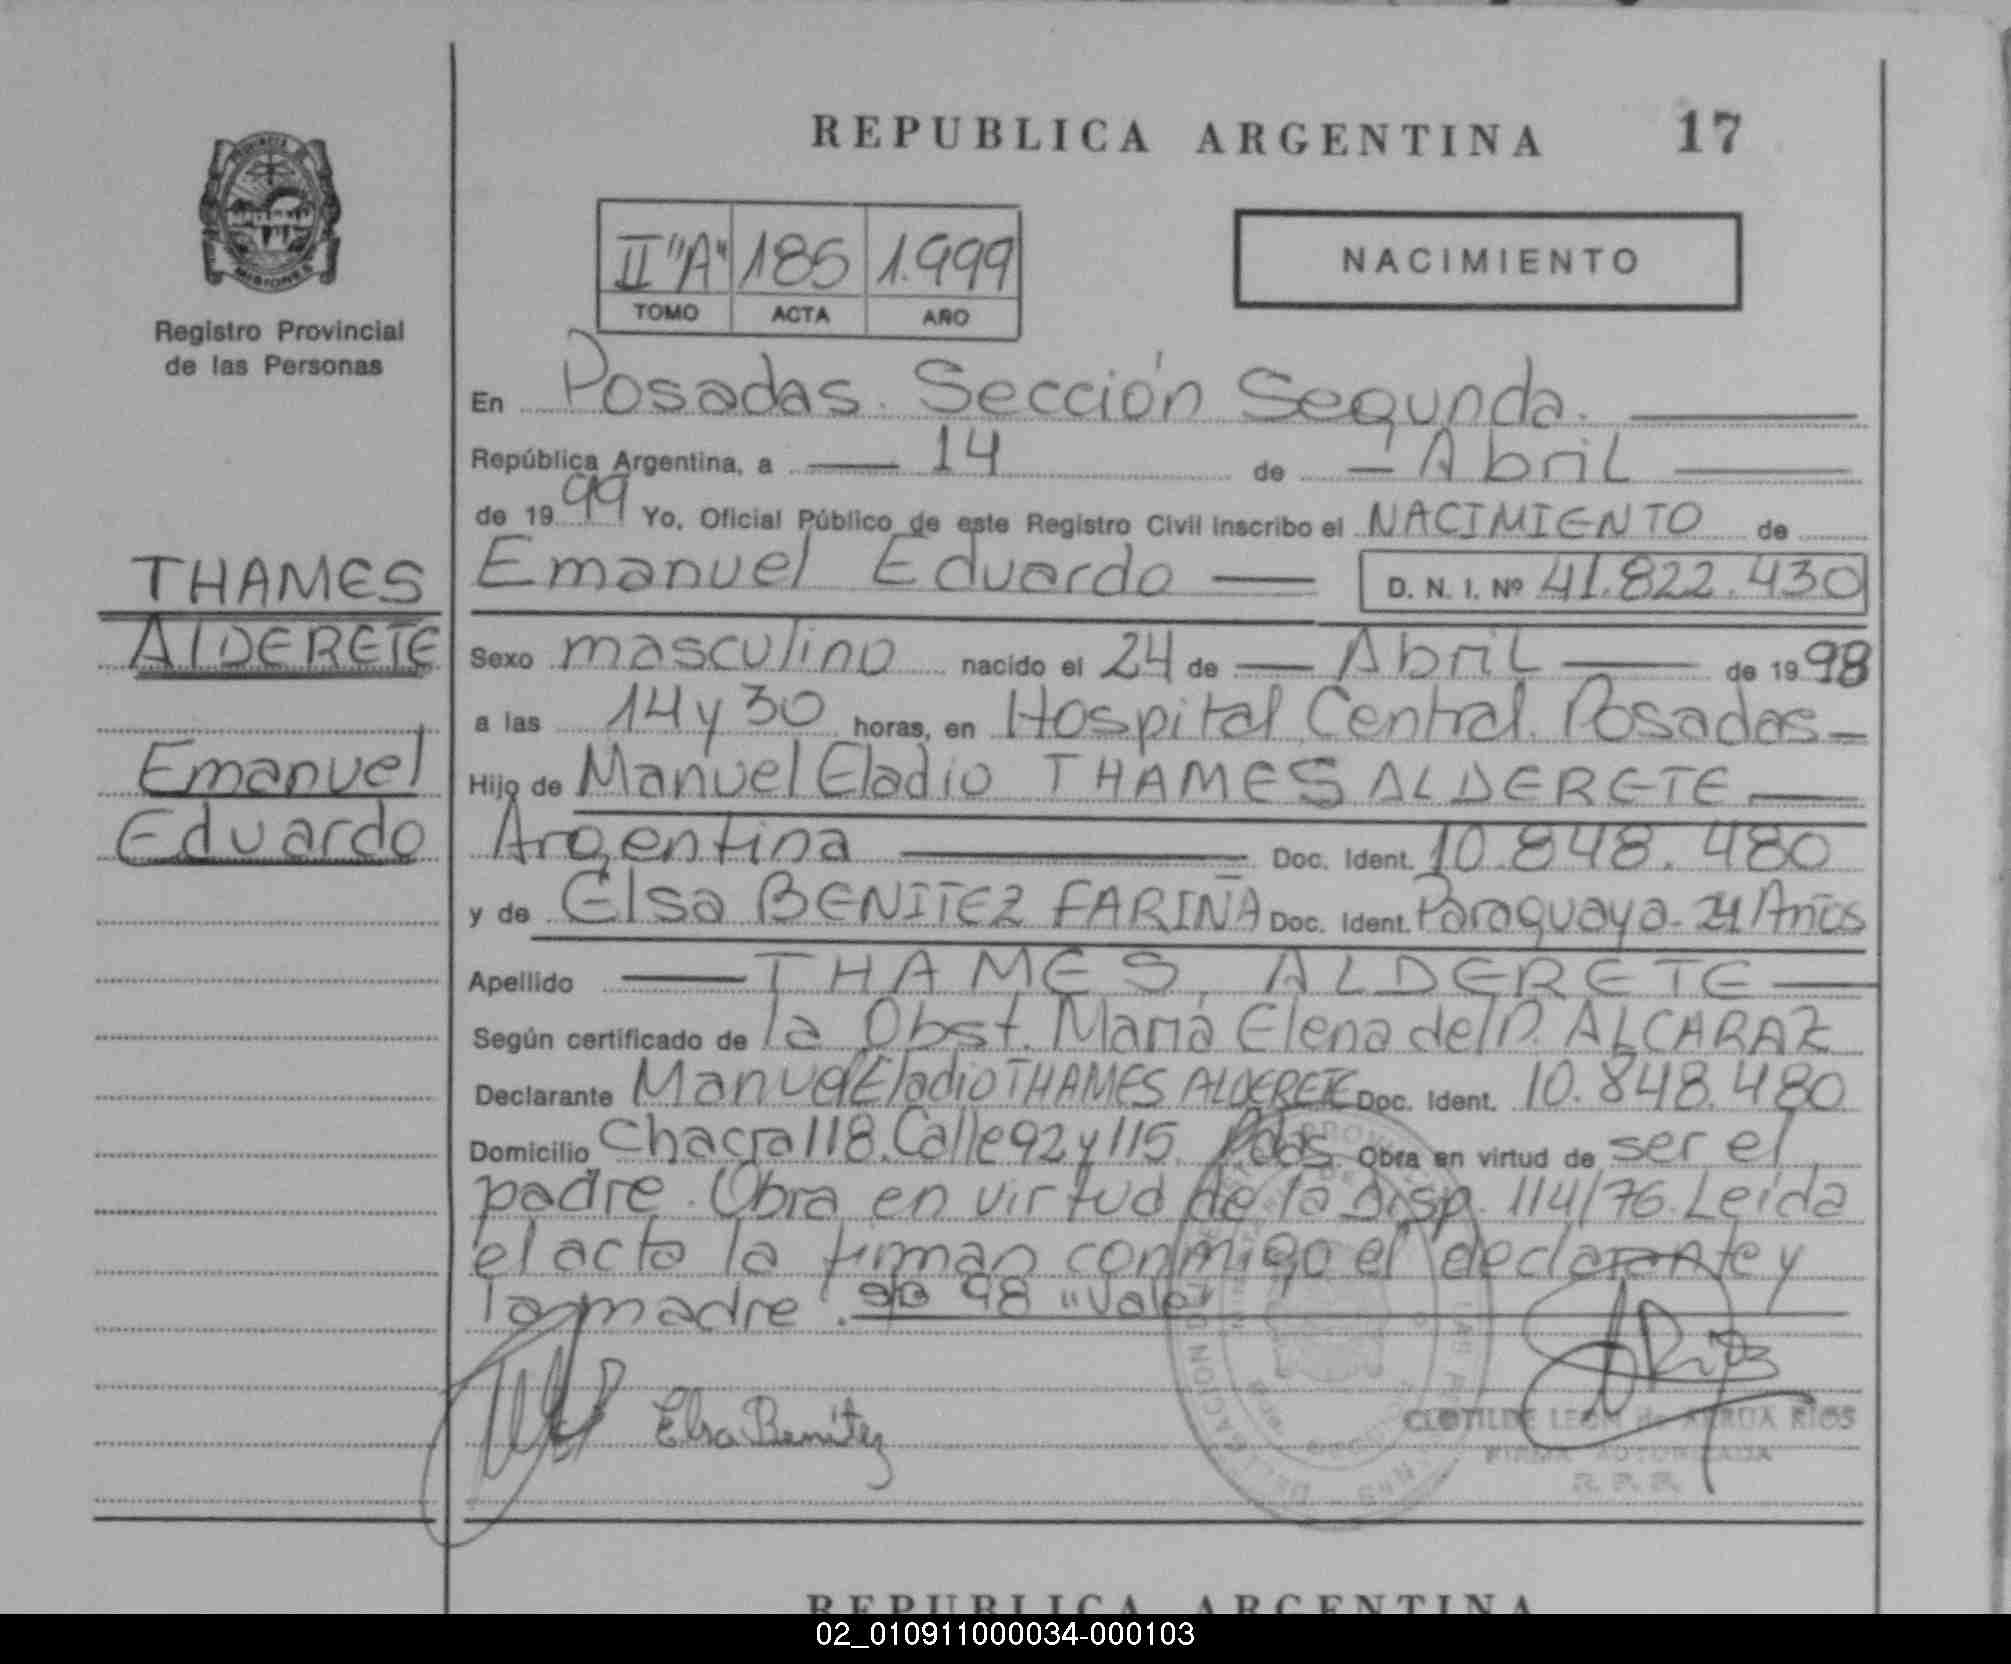 REPUBLICA ARGENTINA 17
MISIONES
Registro Provincial
de las Personas
II "A" 185 1.999
TOMO ACTA AÑO
NACIMIENTO
En Posadas. Sección Segunda.
República Argentina, a 14 de Abril
de 1999 Yo, Oficial Público de este Registro Civil inscribo el NACIMIENTO de
THAMES
ALDERETE
Emanuel
Eduardo
Emanuel Eduardo D. N. I. Nº 41.822.430
Sexo masculino nacido el 24 de Abril de 1998
a las 14 y 30 horas, en Hospital Central. Posadas
Hijo de Manuel Eladio THAMES ALDERETE
Argentina Doc. Ident. 10.848.480
y de Elsa BENITEZ FARIÑA Doc. Ident. Paraguaya - 24 Años
Apellido THAMES, ALDERETE
Según certificado de la Obst. María Elena del P. ALCARAZ
Declarante Manuel Eladio THAMES ALDERETE Doc. Ident. 10.848.480
Domicilio Chacra 118. Calle 92 y 115. Pdas. Obra en virtud de ser el
padre. Obra en virtud de la Disp. 114/76. Leída
el acta la firman conmigo el declarante y
la madre. 98 "Vale"
Elsa Benítez
Rios
CLOTILDE LEON de ARRUA RIOS
FIRMA AUTORIZADA
R. P. P.
REPUBLICA ARGENTINA
02_010911000034-000103